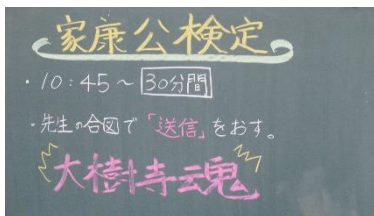 家康公検定
・10:45～ 30分間
・先生の合図で「送信」をおす。
大樹寺魂